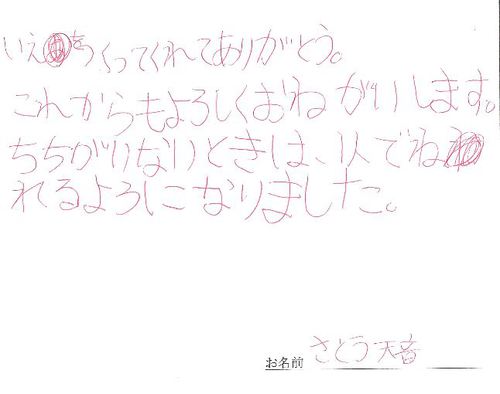 いえをつくってくれてありがとう。
これからもよろしくおねがいします。
ちちがいないときは、1人でね
れるよろになりました。
お名前 さとう天音